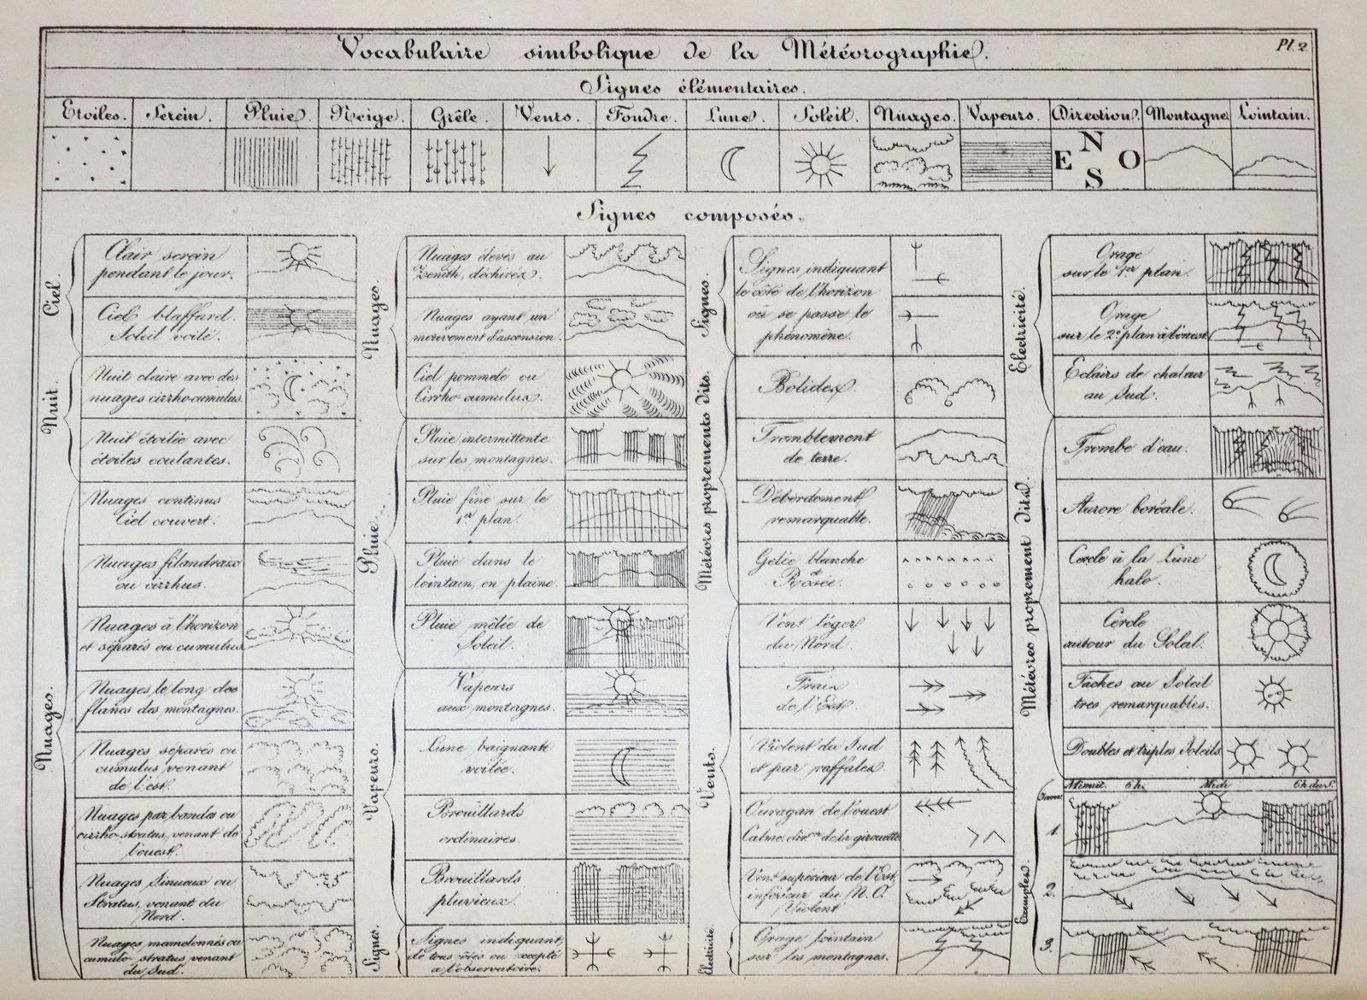 Vocabulaire simbolique de la Météorographie.
Pl. 2
Signes élémentaires.
Etoiles. Serein. Pluie. Neige. Grêle. Vents. Foudre. Lune. Soleil. Nuages. Vapeurs. Direction. Montagne Lointain.
N
E O
S
Signes composés.
Ciel.
Clair serein
pendant le jour.
Ciel blaffard.
Soleil voilé.
Nuit.
Nuit claire avec des
nuages cirrho-cumulus.
Nuit étoilée avec
étoiles coulantes.
Nuages.
Nuages continus
Ciel couvert.
Nuages filandreux
ou cirrhus.
Nuages à l'horizon
et séparés ou cumulus
Nuages le long des
flancs des montagnes.
Nuages séparés ou
cumulus venant
de l'est.
Nuages par bandes ou
cirrho-stratus, venant de
l'ouest.
Nuages Sinueux ou
Stratus, venant du
Nord.
Nuages mamelonnés ou
cumulo-stratus venant
du Sud.
Nuages.
Nuages élevés au
Zénith, déchirés.
Nuages ayant un
mouvement d'ascension.
Ciel pommelé ou
Cirrho-cumulus.
Pluie.
Pluie intermittente
sur les montagnes.
Pluie fine sur le
1er plan.
Pluie dans le
lointain, en plaine.
Pluie mêlée de
Soleil.
Vapeurs.
Vapeurs
aux montagnes.
Lune baignante
voilée.
Brouillards
ordinaires.
Brouillards
pluvieux.
Signes.
Signes indiquant
de tous côtés ou excepté
à l'observatoire.
Signes.
Signes indiquant
le côté de l'horizon
où se passe le
phénomène.
Météores proprements dits.
Bolides.
Tremblement
de terre.
Débordement
remarquable.
Gelée blanche
Rosée.
Vents.
Vent léger
du Nord.
Fraix
de l'Est.
Violent du Sud
et par raffales.
Ouragan de l'ouest.
Calme, de la girouette
Vent supérieur de l'Est,
inférieur du N. O.
Violent
Electricité
Orage lointain
sur les montagnes.
Electricité.
Orage
sur le 1er plan.
Orage
sur le 2e plan à l'ouest
Eclairs de chaleur
au Sud.
Météores proprement dits.
Trombe d'eau.
Aurore boréale.
Cercle à la Lune
halo.
Cercle
autour du Solal.
Tâches au Soleil
tres remarquables.
Doubles et triples Soleils
Exemples.
Minuit. 6h. Midi 6h du S.
1.
2.
3.